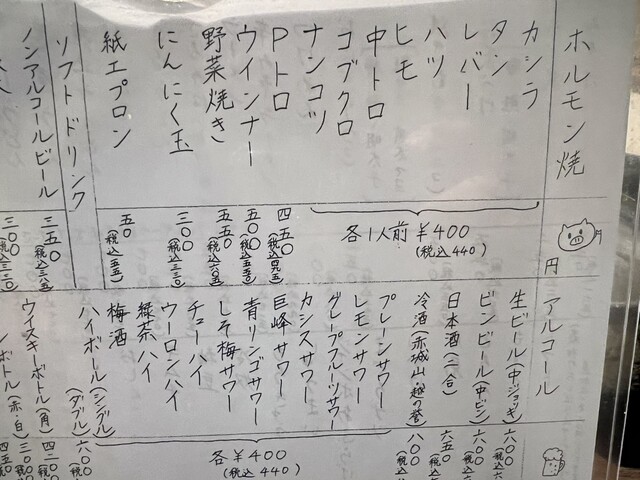 ホルモン焼
円
カシラ
タン
レバー
ハツ
ヒモ
中トロ
コブクロ
ナンコツ
各1人前¥400
(税込440)
Pトロ 四五〇
ウインナー 五〇〇(税込五五〇)
野菜焼き 五五〇(税込六〇五)
にんにく玉 三〇〇(税込三三〇)
紙エプロン 五〇(税込五五)
ソフトドリンク
ノンアルコールビール 三五〇
アルコール
生ビール(中ジョッキ) 六〇〇
ビンビール(中ビン) 六〇〇
日本酒(一合) 六五〇
冷酒(赤城山・越乃誉) 八〇〇
プレーンサワー
レモンサワー
グレープフルーツサワー
カシスサワー
巨峰サワー
青リンゴサワー
しそ梅サワー
チューハイ
ウーロンハイ
緑茶ハイ
梅酒
各¥400
(税込440)
ハイボール(シングル)
(ダブル) 六〇〇
ウイスキーボトル(角)
ボトル(赤・白)